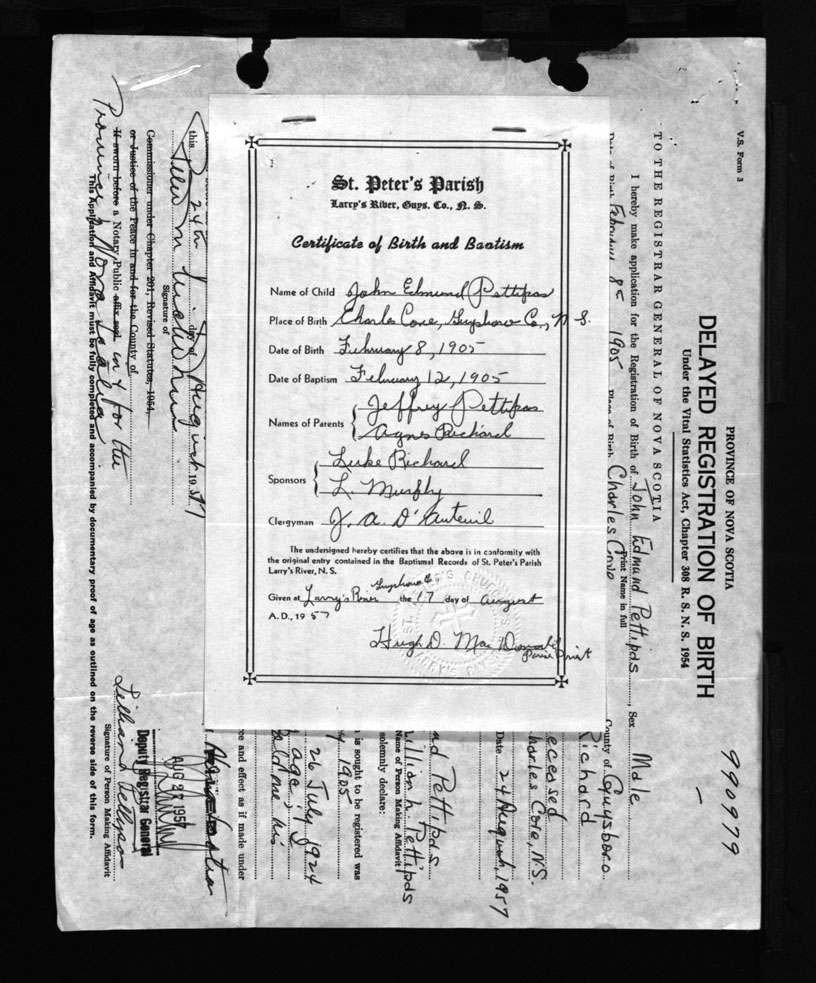 St. Peter's Parish
Larry's River, Guys. Co., N. S.
Certificate of Birth and Baptism
Name of Child John Edmund Pettipas
Place of Birth Charles Cove, Guysboro Co., N. S.
Date of Birth February 8, 1905
Date of Baptism February 12, 1905
Names of Parents Jeffrey Pettipas
Agnes Richard
Sponsors Luke Richard
L. Murphy
Clergyman J. A. D'Auteuil
The undersigned hereby certifies that the above is in conformity with
the original entry contained in the Baptismal Records of St. Peter's Parish
Larry's River, N. S.
Guysboro Co.
Given at Larry's River the 17 day of August
A. D., 1957
Hugh D. MacDonald
Parish Priest
V.S. Form 3
PROVINCE OF NOVA SCOTIA
DELAYED REGISTRATION OF BIRTH
Under the Vital Statistics Act, Chapter 308 R. S. N. S. 1954
990979
TO THE REGISTRAR GENERAL OF NOVA SCOTIA
I hereby make application for the Registration of Birth of John Edmund Pettipas, Sex Male
Print Name in full
Date of Birth February 8th 1905 Place of Birth Charles Cove County of Guysboro
Richard
eceased
harles Cove, N.S.
Date 24 August, 1957
ad Pettipas
illian Pettipas
Name of Person Making Affidavit
solemnly declare:
is sought to be registered was
1905
26 July 1924
age
ce and effect as if made under
this 24th day of August 1957
Signature of
Commissioner under Chapter 201, Revised Statutes, 1954,
or Justice of the Peace in and for the County of
If sworn before a Notary Public affix seal in & for the
Province of Nova Scotia
This Application and Affidavit must be fully completed and accompanied by documentary proof of age as outlined on the reverse side of this form.
AUG 27 1957
Deputy Registrar General
Lillian Pettipas
Signature of Person Making Affidavit